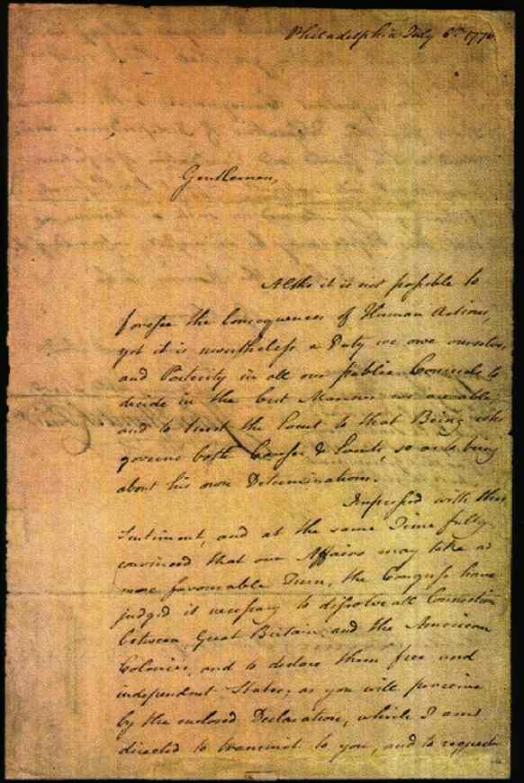 Philadelphia July 6th 1776
Gentlemen,
Altho it is not possible to
foresee the Consequences of Human Actions,
yet it is nevertheless a Duty we owe ourselves
and Posterity in all our public Councils to
decide in the best Manner we are able,
and to trust the Event to that Being who
governs both Causes & Events, so as to bring
about his own Determinations.
Impressed with this
Sentiment, and at the same Time fully
convinced that our Affairs may take a
more favourable Turn, the Congress have
judged it necessary to dissolve all Connection
between Great Britain and the American
Colonies, and to declare them free and
independent States; as you will perceive
by the enclosed Declaration, which I am
directed to transmit to you, and to request